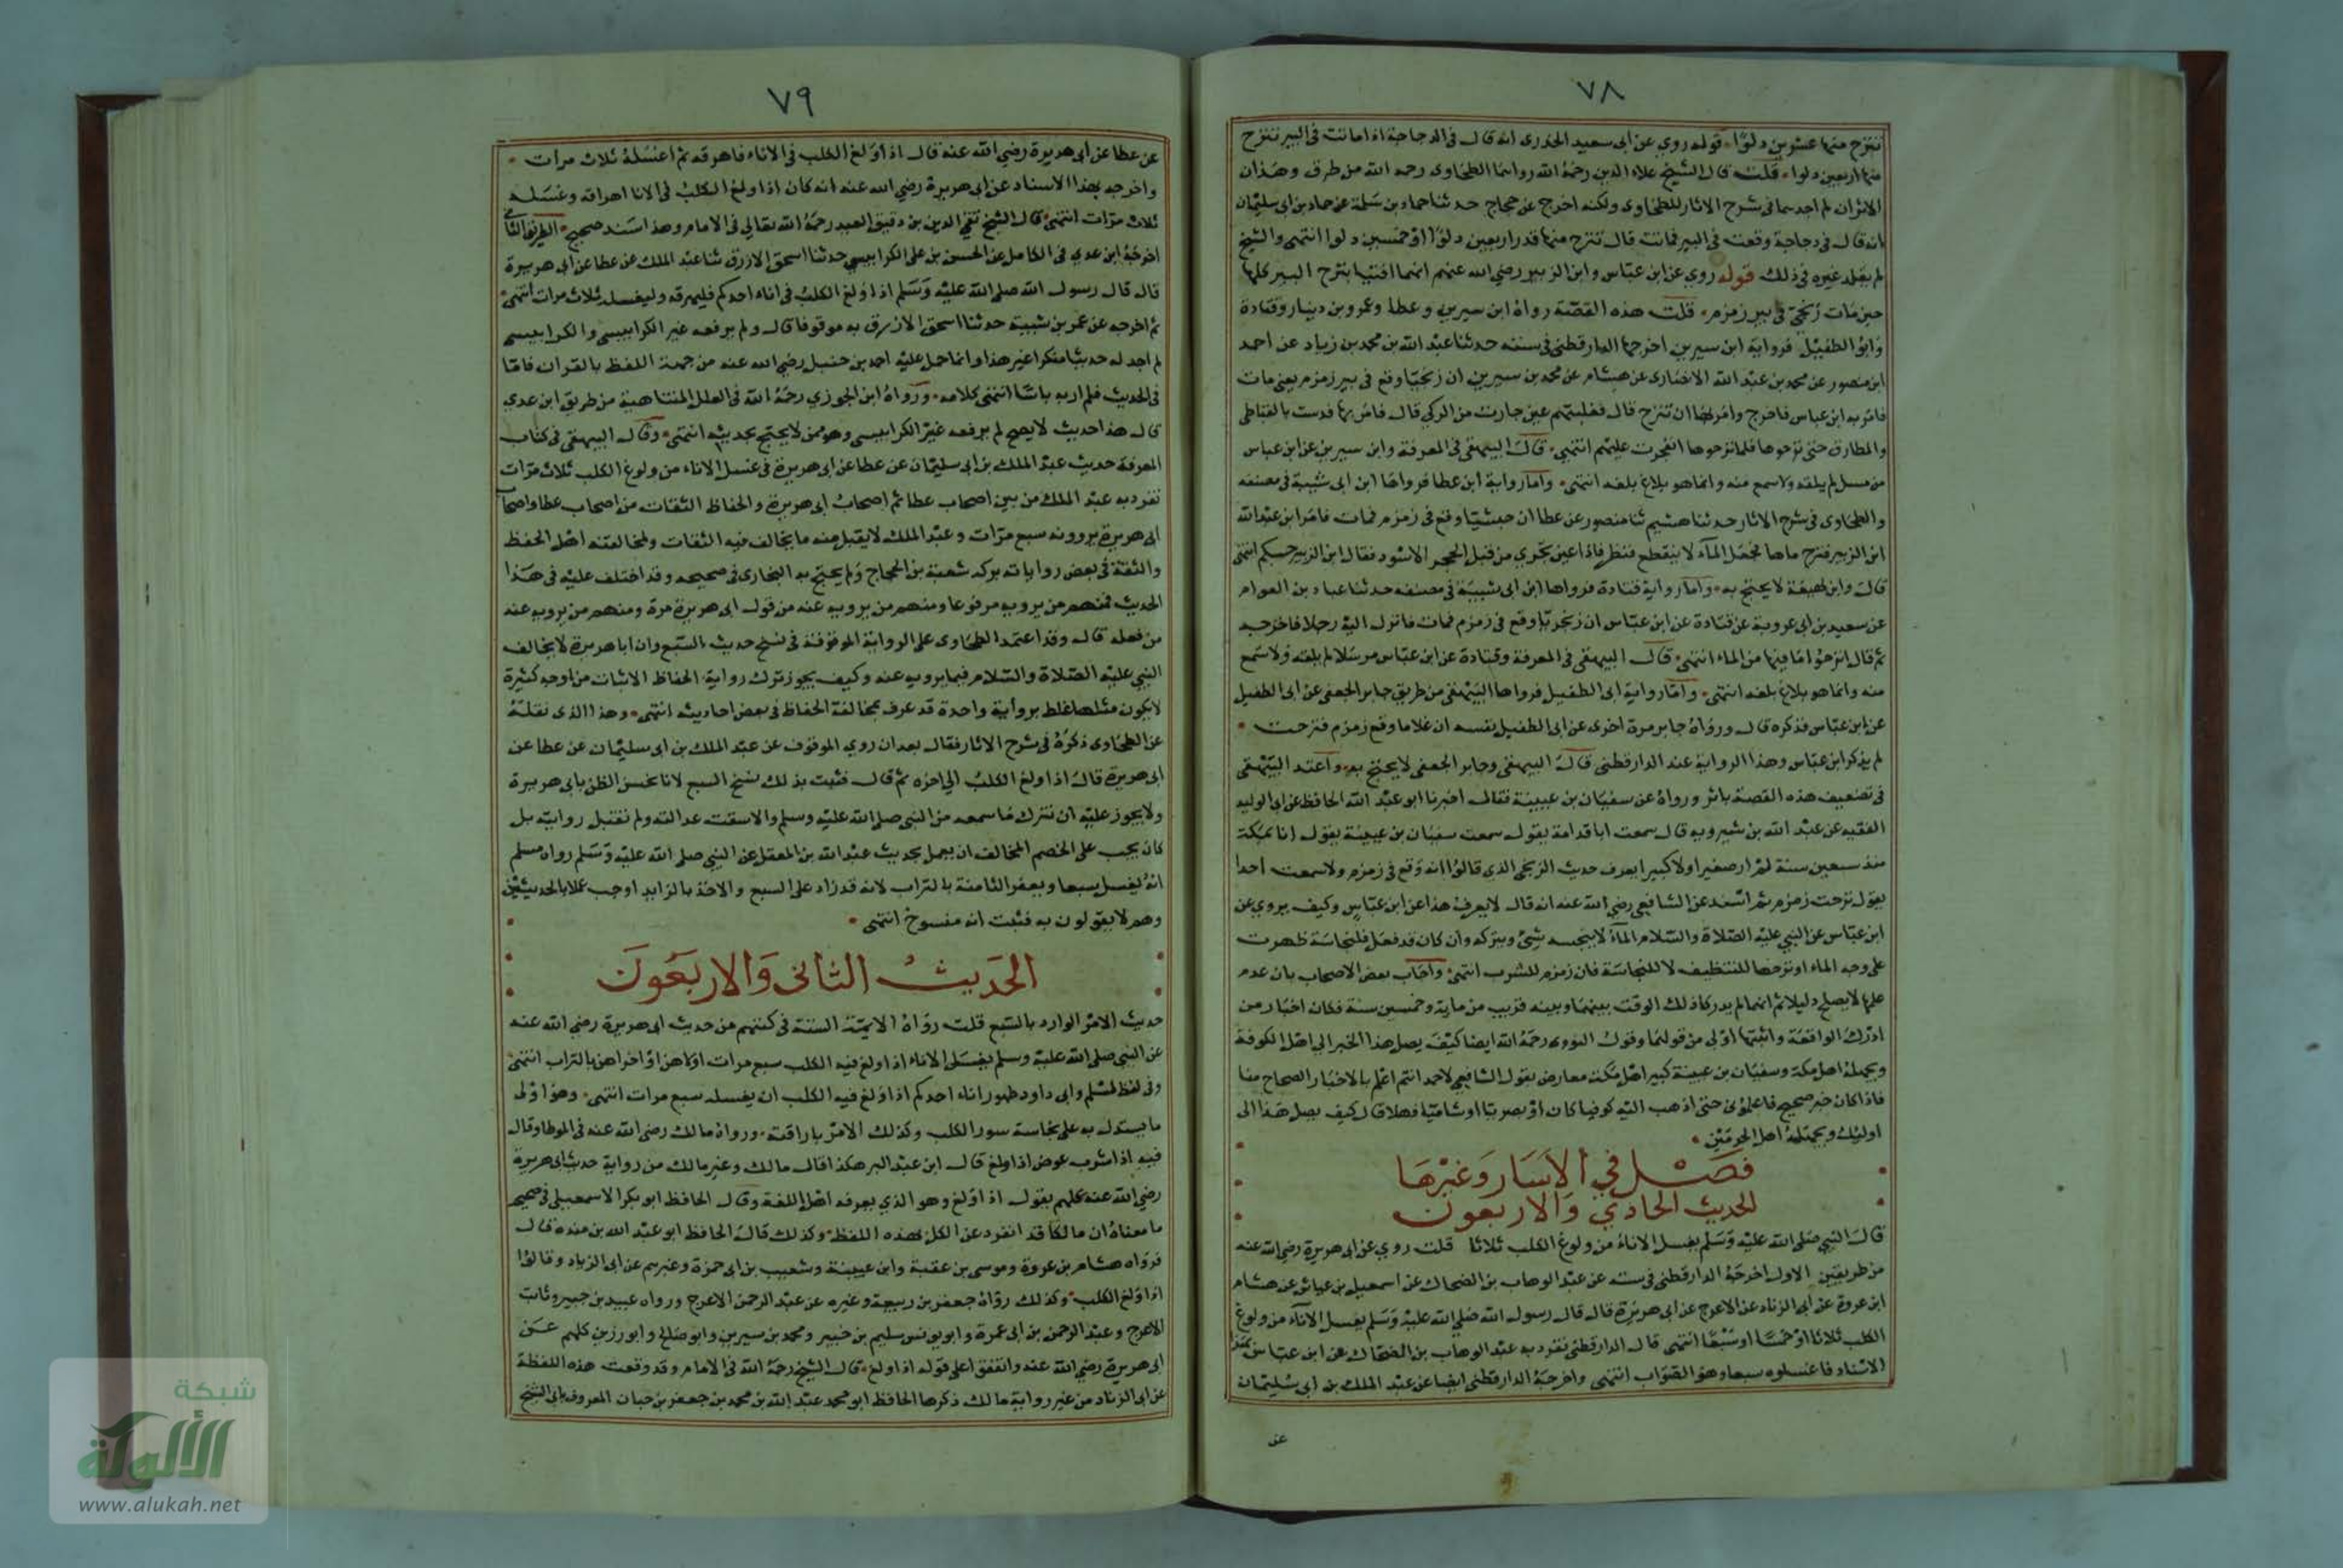 ٧٨
ننزح منها عشرين دلوًا قوله روي عن ابى سعيد الخدرى انه قال فى الدجاجة اذا ماتت فى البير تنزح
منها اربعين دلوا قلت قال الشيخ علاء الدين رحمه الله رواهما الطحاوى رحمه الله من طرق وهذان
الاثران لم اجدهما فى شرح الاثار للطحاوى ولكنه اخرج عن حجاج حدثنا حماد بن سلمة عن حماد بن ابى سليمان
انه قال فى دجاجة وقعت فى البير فماتت قال تنزح منها قدر اربعين دلوًا او خمسين دلوا انتهى والشيخ
لم يقلد غيره فى ذلك قوله روي عن ابن عباس وابن الزبير رضي الله عنهم انهما افتيا بنزح البير كلها
حين مات زنجي في بير زمزم قلت هذه القصة رواها ابن سيرين وعطا وعمرو بن دينار وقتادة
وابو الطفيل فرواية ابن سيرين اخرجها الدارقطنى فى سننه حدثنا عبد الله بن محمد بن زياد عن احمد
ابن منصور عن محمد بن عبد الله الانصارى عن هشام عن محمد بن سيرين ان زنجيا وقع فى بير زمزم يعنى مات
فامر به ابن عباس فاخرج وامر بها ان تنزح قال فغلبتهم عين جاءت من الركي قال فامر بها فدست بالقباطى
والمطارق حتى نزحوها فلما نزحوها انفجرت عليهم انتهى قال البيهقى فى المعرفة وابن سيرين عن ابن عباس
مرسل لم يلقه ولا سمع منه وانما هو بلاغ بلغه انتهى واما رواية ابن عطا فرواها ابن ابى شيبة فى مصنفه
والطحاوى فى شرح الاثار حدثنا هشيم ثنا منصور عن عطا ان حبشيا وقع فى زمزم فمات فامر ابن عبد الله
ابن الزبير فنزح ماها فجعل الماء لا ينقطع فنظر فاذا عين تجرى من قبل الحجر الاسود فقال ابن الزبير حسبكم انتهى
قال وابن لهيعة لا يحتج به واما رواية قتادة فرواها ابن ابى شيبة فى مصنفه حدثنا عباد بن العوام
عن سعيد بن ابى عروبة عن قتادة عن ابن عباس ان زنجيا وقع فى زمزم فمات فانزل اليه رجلا فاخرجه
ثم قال انزحوا ما فيها من الماء انتهى قال البيهقى فى المعرفة وقتادة عن ابن عباس مرسلا لم يلقه ولا سمع
منه وانما هو بلاغ بلغه انتهى واما رواية ابى الطفيل فرواها البيهقى من طريق جابر الجعفى عن ابى الطفيل
عن ابن عباس فذكره قال ورواه جابر مرة اخرى عن ابى الطفيل نفسه ان غلاما وقع زمزم فنزحت
لم يذكر ابن عباس وهذا الرواية عند الدارقطنى قال البيهقى وجابر الجعفى لا يحتج به واعتد البيهقى
فى تضعيف هذه القصة باثر ورواه عن سفيان بن عيينة فقال اخبرنا ابو عبد الله الحافظ عن ابى الوليد
الفقيه عن عبد الله بن شيرويه قال سمعت ابا قدامة يقول سمعت سفيان بن عيينة يقول انا بمكة
منذ سبعين سنة لم ار صغيرا ولا كبيرا يعرف حديث الزنجى الذى قالوا انه وقع فى زمزم ولا سمعت احدا
يقول نزحت زمزم ثم اسند عن الشافعى رضي الله عنه انه قال لا يعرف هذا عن ابن عباس وكيف يروى عن
ابن عباس عن النبي عليه الصلاة والسلام الماء لا ينجسه شئ ويتركه وان كان قد فعل فلنجاسة ظهرت
على وجه الماء او نزحها للتنظيف لا للنجاسة فان زمزم للشرب انتهى واجاب بعض الاصحاب بان عدم
علمها لا يصلح دليلا ثم انهما لم يدركا ذلك الوقت بينهما وبينه قريب من ماية وخمسين سنة فكان اخبار من
ادرك الواقعة واثبتها اولى من قولهما وقول النووى رحمه الله ايضا كيف يصل هذا الخبر الى اهل الكوفة
ويجهله اهل مكة وسفيان بن عيينة كبير اهل مكة معارض بقول الشافعى لاحمد انتم اعلم بالاخبار الصحاح منا
فاذا كان خبر صحيح فاعلمونى حتى اذهب اليه كوفيا كان او بصريا او شاميا فهلا قال كيف يصل هذا الى
اوليك ويجهله اهل الحرمين
فصل في الاسار وغيرها
الحديث الحادي والاربعون
قال النبي صلى الله عليه وسلم يغسل الاناء من ولوغ الكلب ثلاثا قلت روي عن ابى هريرة رضي الله عنه
من طريقين الاول اخرجه الدارقطنى فى سننه عن عبد الوهاب بن الضحاك عن اسمعيل بن عياش عن هشام
ابن عروة عن ابى الزناد عن الاعرج عن ابى هريرة قال قال رسول الله صلى الله عليه وسلم يغسل الاناء من ولوغ
الكلب ثلاثا او خمسا او سبعا انتهى قال الدارقطنى تفرد به عبد الوهاب بن الضحاك عن ابن عباس بهذا
الاسناد فاغسلوه سبعا وهو الصواب انتهى واخرجه الدارقطنى ايضا عن عبد الملك بن ابى سليمان
عن
٧٩
عن عطا عن ابى هريرة رضي الله عنه قال اذا ولغ الكلب فى الاناء فاهرقه ثم اغسله ثلاث مرات
واخرجه بهذا الاسناد عن ابى هريرة رضي الله عنه انه كان اذا ولغ الكلب فى الانا اهراقه وغسله
ثلاث مرات انتهى قال الشيخ تقي الدين بن دقيق العيد رحمه الله تعالى فى الامام وهذا سند صحيح الطريق الثانى
اخرجه ابن عدي فى الكامل عن الحسين بن على الكرابيسي حدثنا اسحق الازرق ثنا عبد الملك عن عطا عن ابى هريرة
قال قال رسول الله صلى الله عليه وسلم اذا ولغ الكلب فى اناء احدكم فليهرقه وليغسله ثلاث مرات انتهى
ثم اخرجه عن عمر بن شبية حدثنا اسحق الازرق به موقوفا قال ولم يرفعه غير الكرابيسى والكرابيسى
لم اجد له حديثا منكرا غير هذا وانما حمل عليه احمد بن حنبل رضي الله عنه من جهة اللفظ بالقران فاما
فى الحديث فلم ار به باسا انتهى كلامه ورواه ابن الجوزي رحمه الله فى العلل المتناهية من طريق ابن عدي
قال هذا حديث لا يصح لم يرفعه غير الكرابيسى وهو ممن لا يحتج بحديثه انتهى وقال البيهقى فى كتاب
المعرفة حديث عبد الملك بن ابى سليمان عن عطا عن ابى هريرة فى غسل الاناء من ولوغ الكلب ثلاث مرات
تفرد به عبد الملك من بين اصحاب عطا ثم اصحاب ابى هريرة والحفاظ الثقات من اصحاب عطا واصحاب
ابى هريرة يروونه سبع مرات وعبد الملك لا يقبل منه ما يخالف فيه الثقات ولمخالفته اهل الحفظ
والثقة فى بعض رواياته تركه شعبة بن الحجاج ولم يحتج به البخارى فى صحيحه وقد اختلف عليه فى هذا
الحديث فمنهم من يرويه مرفوعا ومنهم من يرويه عنه من قول ابى هريرة مرة ومنهم من يرويه عنه
من فعله قال وقد اعتمد الطحاوى على الرواية الموقوفة فى نسخ حديث السبع وان ابا هريرة لا يخالف
النبي عليه الصلاة والسلام فيما يرويه عنه وكيف يجوز ترك رواية الحفاظ الاثبات من اوجه كثيرة
لا يكون مثلها غلط برواية واحدة قد عرف بمخالفة الحفاظ فى بعض احاديثه انتهى وهذا الذى نقله
عن الطحاوى ذكره فى شرح الاثار فقال بعد ان روي الموقوف عن عبد الملك بن ابى سليمان عن عطا عن
ابى هريرة قال اذا ولغ الكلب الى اخره ثم قال فثبت بذلك نسخ السبع لانا نحسن الظن بابى هريرة
ولا يجوز عليه ان نترك ما سمعه من النبى صلى الله عليه وسلم والا سقت عدالته ولم نقبل روايته بل
كان يجب على الخصم المخالف ان يعمل بحديث عبد الله بن المعقل عن النبي صلى الله عليه وسلم رواه مسلم
انه يغسل سبعا ويعفر الثامنة بالتراب لانه قد زاد على السبع والاخذ بالزايد اوجب عملا بالحديثين
وهم لا يقولون به فثبت انه منسوخ انتهى
الحديث الثانى والاربعون
حديث الامر الوارد بالسبع قلت رواه الايمة الستة فى كتبهم من حديث ابى هريرة رضي الله عنه
عن النبى صلى الله عليه وسلم يغسل الاناء اذا ولغ فيه الكلب سبع مرات اولاهن او اخراهن بالتراب انتهى
وفى لفظ لمسلم وابى داود طهور اناء احدكم اذا ولغ فيه الكلب ان يغسله سبع مرات انتهى وهو اولى
ما يستدل به على نجاسة سور الكلب وكذلك الامر باراقته ورواه مالك رضي الله عنه فى الموطا وقال
فيه اذا شرب عوض اذا ولغ قال ابن عبد البر هكذا قال مالك وغير مالك من رواية حديث ابى هريرة
رضي الله عنه كلهم يقول اذا ولغ وهو الذي يعرفه اهل اللغة وقال الحافظ ابو بكر الاسمعيلى فى صحيحه
ما معناه ان مالكا قد انفرد عن الكل بهذه اللفظة وكذلك قال الحافظ ابو عبد الله بن منده قال
فرواه هشام بن عروة وموسى بن عقبة وابن عيينة وشعيب بن ابى حمزة وغيرهم عن ابى الزناد وقالوا
اذا ولغ الكلب وكذلك رواه جعفر بن ربيعة وغيره عن عبد الرحمن الاعرج ورواه عبيد بن جبير وثابت
الاعرج وعبد الرحمن بن ابى عمرة وابو يونس سليم بن جبير ومحمد بن سيرين وابو صالح وابو رزين كلهم عن
ابى هريرة رضي الله عنه واتفقوا على قوله اذا ولغ قال الشيخ رحمه الله فى الامام وقد وقعت هذه اللفظة
عن ابى الزناد من غير رواية مالك ذكرها الحافظ ابو محمد عبد الله بن محمد بن جعفر بن حبان المعروف بابى الشيخ
شبكة
الألوكة
www.alukah.net